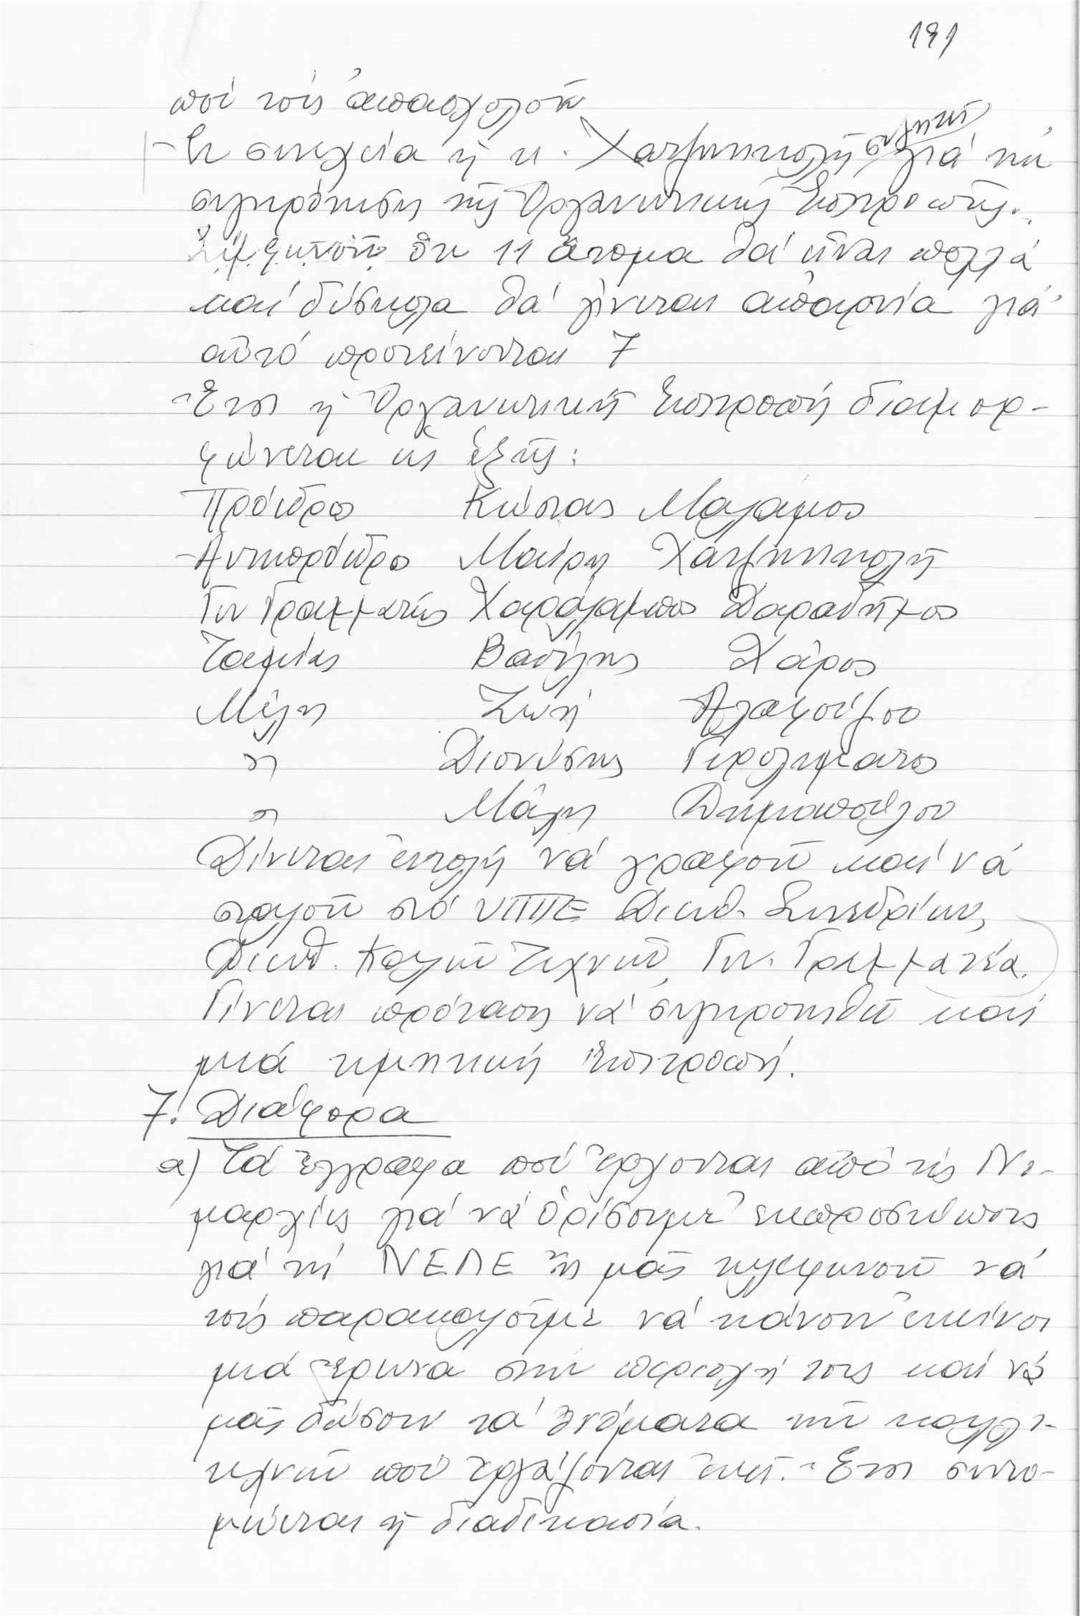 191
ποὺ τοὺς ἀπασχολοῦν
- Ἐν συνεχεία ἡ κ. Χατζηνικολῆ μιλάει γιά τήν
συγκρότηση τῆς Ὀργανωτικῆς Ἐπιτροπῆς.
ὅτι 11 ἄτομα θά εἶναι πολλά
καί δύσκολα θά γίνεται ἀπαρτία γιά
αὐτό προτείνονται 7
- Ἔτσι ἡ Ὀργανωτική Ἐπιτροπή διαμορ-
φώνεται ὡς ἑξῆς:
Πρόεδρος Κώστας Μαλάμος
- Ἀντιπρόεδρος Μαίρη Χατζηνικολῆ
Γεν Γραμματέας Χαράλαμπος Δαραδήμος
Ταμίας Βασίλης Χάρος
Μέλη Ζωή Ἀλαφούζου
" Διονύσης Γερολυμάτος
" Μάχη Δημοπούλου
Δίνεται ἐντολή νά γραφοῦν καί νά
σταλοῦν στό ΥΠΠΕ Διευθ. Συνεδρίων,
Διευθ. Καλῶν Τεχνῶν, Γεν. Γραμματεία.
Γίνεται πρόταση νά συγκροτηθεῖ καί
μιά τιμητική ἐπιτροπή.
7. Διάφορα
α) Τά ἔγγραφα πού ἔρχονται ἀπό τίς Νο-
μαρχίες γιά νά ὁρίσουμε ἐκπροσώπους
για τή ΝΕΛΕ ἤ μᾶς τηλεφωνοῦν νά
τούς παρακαλοῦμε νά κάνουν ἐκεῖνοι
μιά ἔρευνα στήν περιοχή τους καί νά
μᾶς δώσουν τά ὀνόματα τῶν καλλι-
τεχνῶν πού ἐργάζονται ἐκεῖ. - Ἔτσι συντο-
μεύεται ἡ διαδικασία.